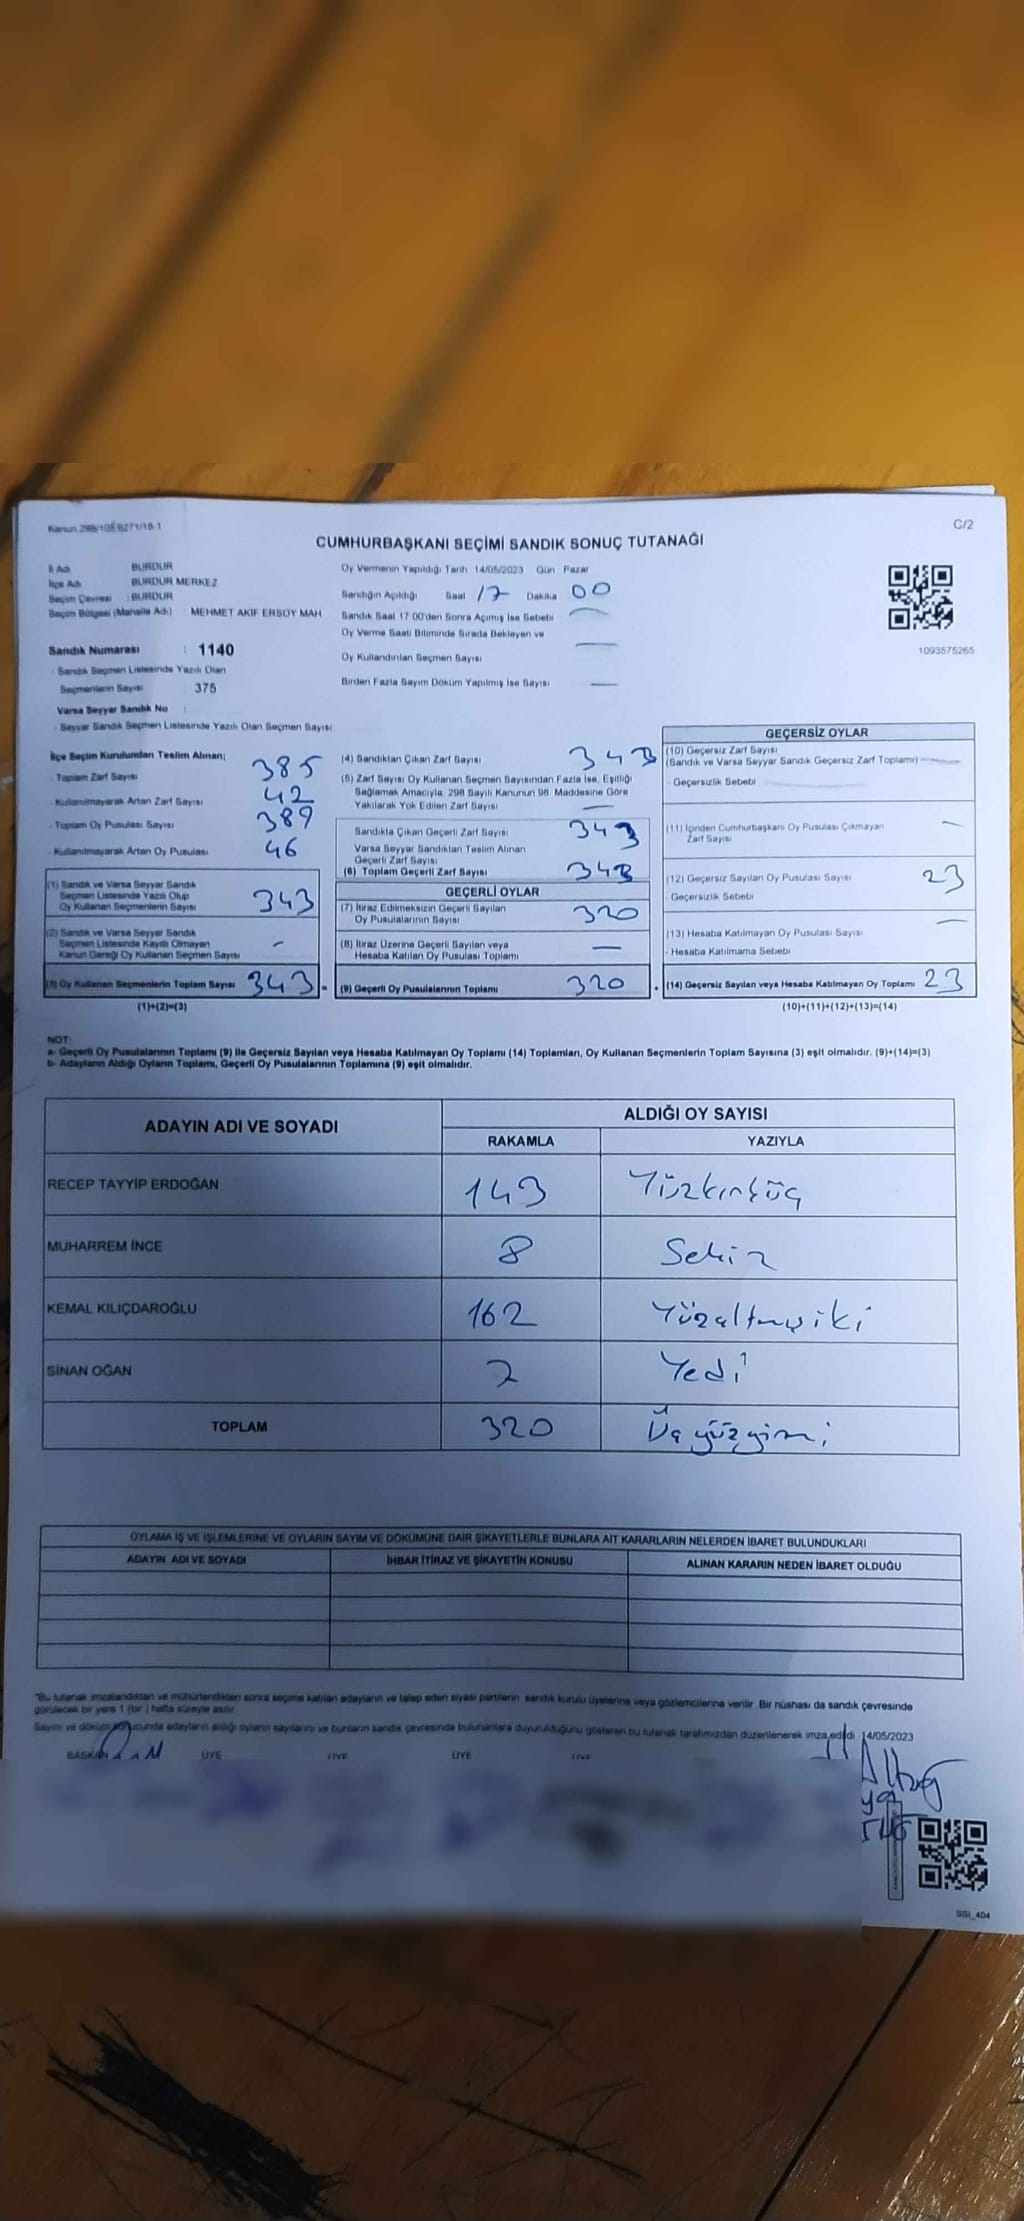 Kanun.298/105 6271/18-1
C/2
CUMHURBAŞKANI SEÇİMİ SANDIK SONUÇ TUTANAĞI
İl Adı : BURDUR
İlçe Adı : BURDUR MERKEZ
Seçim Çevresi : BURDUR
Seçim Bölgesi (Mahalle Adı) : MEHMET AKİF ERSOY MAH
Sandık Numarası : 1140
- Sandık Seçmen Listesinde Yazılı Olan
Seçmenlerin Sayısı : 375
Varsa Seyyar Sandık No :
- Seyyar Sandık Seçmen Listesinde Yazılı Olan Seçmen Sayısı
Oy Vermenin Yapıldığı Tarih 14/05/2023 Gün Pazar
Sandığın Açıldığı Saat 17 Dakika 00
Sandık Saat 17:00'den Sonra Açılmış İse Sebebi —
Oy Verme Saati Bitiminde Sırada Bekleyen ve
Oy Kullandırılan Seçmen Sayısı —
Birden Fazla Sayım Döküm Yapılmış İse Sayısı —
1093575265
İlçe Seçim Kurulundan Teslim Alınan;
- Toplam Zarf Sayısı 385
- Kullanılmayarak Artan Zarf Sayısı 42
- Toplam Oy Pusulası Sayısı 389
- Kullanılmayarak Artan Oy Pusulası 46
(1) Sandık ve Varsa Seyyar Sandık
Seçmen Listesinde Yazılı Olup
Oy Kullanan Seçmenlerin Sayısı 343
(2) Sandık ve Varsa Seyyar Sandık
Seçmen Listesinde Kayıtlı Olmayan
Kanun Gereği Oy Kullanan Seçmen Sayısı -
(3) Oy Kullanan Seçmenlerin Toplam Sayısı 343 =
(1)+(2)=(3)
(4) Sandıktan Çıkan Zarf Sayısı 343
(5) Zarf Sayısı Oy Kullanan Seçmen Sayısından Fazla İse, Eşitliği
Sağlamak Amacıyla, 298 Sayılı Kanunun 98. Maddesine Göre
Yakılarak Yok Edilen Zarf Sayısı —
Sandıkta Çıkan Geçerli Zarf Sayısı 343
Varsa Seyyar Sandıktan Teslim Alınan
Geçerli Zarf Sayısı
(6) Toplam Geçerli Zarf Sayısı 343
GEÇERLİ OYLAR
(7) İtiraz Edilmeksizin Geçerli Sayılan
Oy Pusulalarının Sayısı 320
(8) İtiraz Üzerine Geçerli Sayılan veya
Hesaba Katılan Oy Pusulası Toplamı —
(9) Geçerli Oy Pusulalarının Toplamı 320 +
GEÇERSİZ OYLAR
(10) Geçersiz Zarf Sayısı
(Sandık ve Varsa Seyyar Sandık Geçersiz Zarf Toplamı) —
- Geçersizlik Sebebi —
(11) İçinden Cumhurbaşkanı Oy Pusulası Çıkmayan
Zarf Sayısı —
(12) Geçersiz Sayılan Oy Pusulası Sayısı 23
- Geçersizlik Sebebi
(13) Hesaba Katılmayan Oy Pusulası Sayısı —
- Hesaba Katılmama Sebebi
(14) Geçersiz Sayılan veya Hesaba Katılmayan Oy Toplamı 23
(10)+(11)+(12)+(13)=(14)
NOT:
a- Geçerli Oy Pusulalarının Toplamı (9) ile Geçersiz Sayılan veya Hesaba Katılmayan Oy Toplamı (14) Toplamları, Oy Kullanan Seçmenlerin Toplam Sayısına (3) eşit olmalıdır. (9)+(14)=(3)
b- Adayların Aldığı Oyların Toplamı, Geçerli Oy Pusulalarının Toplamına (9) eşit olmalıdır.
ADAYIN ADI VE SOYADI
ALDIĞI OY SAYISI
RAKAMLA YAZIYLA
RECEP TAYYİP ERDOĞAN 143 Yüzkırküç
MUHARREM İNCE 8 Sekiz
KEMAL KILIÇDAROĞLU 162 Yüzaltmışiki
SİNAN OĞAN 7 Yedi
TOPLAM 320 Üçyüzyirmi
OYLAMA İŞ VE İŞLEMLERİNE VE OYLARIN SAYIM VE DÖKÜMÜNE DAİR ŞİKAYETLERLE BUNLARA AİT KARARLARIN NELERDEN İBARET BULUNDUKLARI
ADAYIN ADI VE SOYADI İHBAR İTİRAZ VE ŞİKAYETİN KONUSU ALINAN KARARIN NEDEN İBARET OLDUĞU
"Bu tutanak imzalandıktan ve mühürlendikten sonra seçime katılan adayların ve talep eden siyasi partilerin sandık kurulu üyelerine veya gözlemcilerine verilir. Bir nüshası da sandık çevresinde
görülecek bir yere 1 (bir) hafta süreyle asılır.
Sayım ve döküm sonucunda adayların aldığı oyların sayılarını ve bunların sandık çevresinde bulunanlara duyurulduğunu gösteren bu tutanak tarafımızdan düzenlenerek imza edildi 14/05/2023
BAŞKAN ÜYE ÜYE ÜYE ÜYE
SSI_404